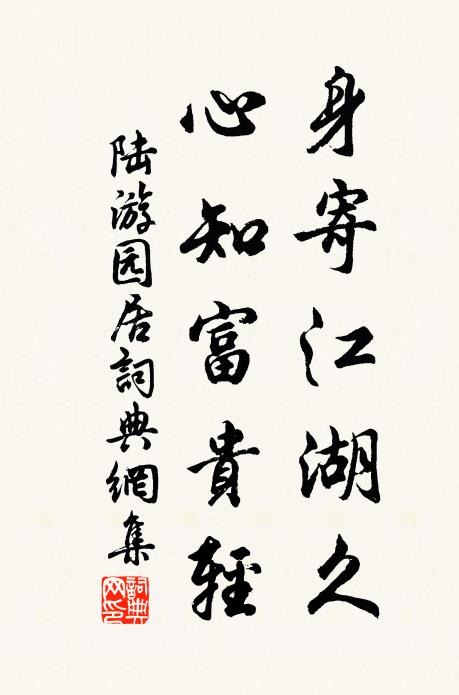 身寄江湖久
心知富貴輕
陆游园居詞典網集
詞典网印